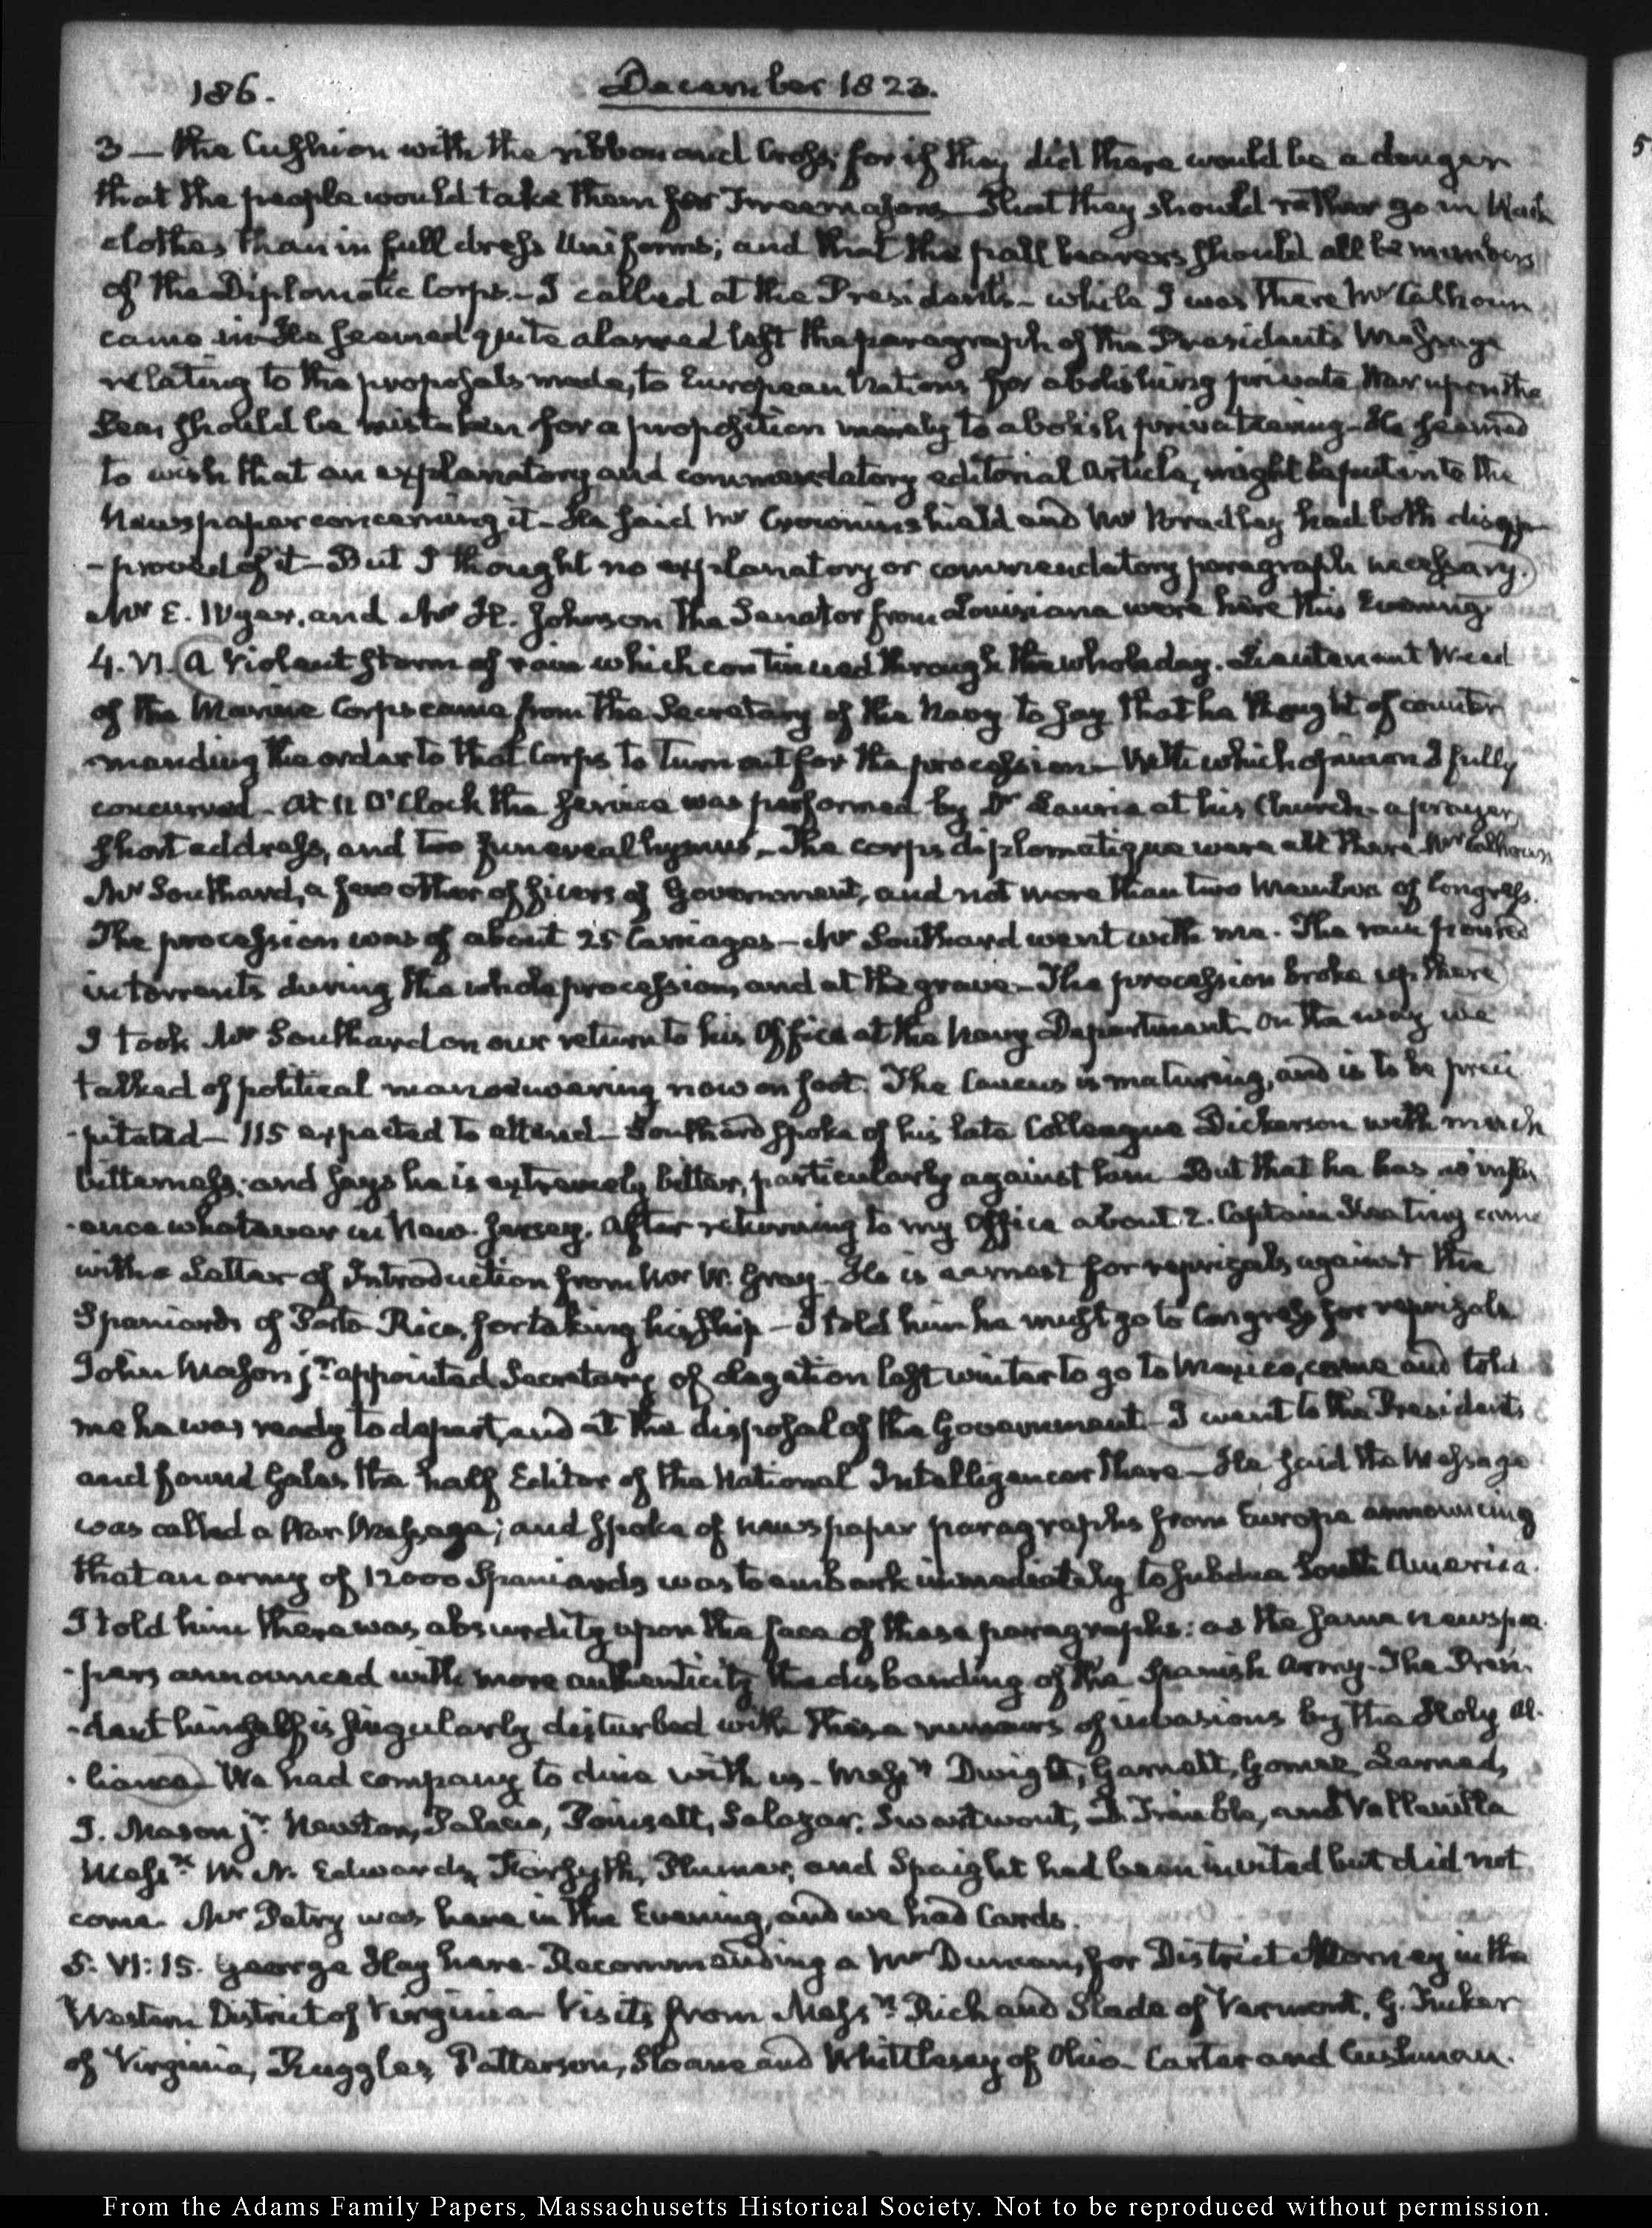 186.
December 1823.
3 — the Cushion with the ribbon and Cross; for if they did there would be a danger
that the people would take them for Freemasons — That they should rather go in black
clothes than in full dress Uniforms; and that the pall bearers should all be members
of the Diplomatic Corps. – I called at the President's – while I was there Mr Calhoun
came in – He seemed quite alarmed lest the paragraph of the President's Message
relating to the proposals made, to European Nations for abolishing private War upon the
Sea, should be mistaken for a proposition merely to abolish privateering – He seemed
to wish that an explanatory and commendatory editorial Article, might be put into the
Newspaper concerning it – He said Mr Crowninshield and Mr Bradley had both disap-
-proved of it – But I thought no explanatory or commendatory paragraph necessary.
Mr E. Wyer, and Mr H. Johnson the Senator from Louisiana were here this Evening.
4. VI. A Violent storm of rain which continued through the whole day. Lieutenant Weed
of the Marine Corps came from the Secretary of the Navy to say that he thought of counter
manding the order to that Corps to turn out for the procession – With which opinion I fully
concurred – At 11 O'Clock the service was performed by Dr Laurie at his Church – a prayer,
short address, and two funereal hymns, – The corps diplomatique were all there Mr Calhoun
Mr Southard, a few other officers of Government, and not more than two Members of Congress.
The procession was of about 25 Carriages – Mr Southard went with me. The rain poured
in torrents during the whole procession, and at the grave – The procession broke up there
I took Mr Southard on our return to his Office at the Navy Department. On the way we
talked of political manoeuvering now on foot. The Caucus is maturing, and is to be preci
-pitated – 115 expected to attend – Southard spoke of his late Colleague Dickerson with much
bitterness; and says he is extremely bitter, particularly against him But that he has no influ
-ence whatever in New-Jersey. After returning to my Office about 2. Captain Keating came
with a Letter of Introduction from Mr W. Gray – He is earnest for reprisals against the
Spaniards of Porto Rico, for taking his ship – I told him he must go to Congress for reprisals
John Mason jr. appointed Secretary of Legation last winter to go to Mexico, came and told
me he was ready to depart, and at the disposal of the Government – I went to the President's
and found Gales the half Editor of the National Intelligencer there – He said the Message
was called a War Message; and spoke of newspaper paragraphs from Europe announcing
that an army of 12000 Spaniards was to embark immediately to subdue South America.
I told him there was absurdity upon the face of these paragraphs: as the same newspa
-pers announced with more authenticity the disbanding of the Spanish Army. The Presi-
-dent himself is singularly disturbed with these rumours of invasions by the Holy Al-
-liance – We had company to dine with us – Messrs Dwight, Garnett, Gomez, Larned,
J. Mason jr. Newton, Palacio, Poinsett, Salazar, Swartwout, D. Trimble, and Vallenilla
Messrs W. N. Edwards, Forsyth, Plumer, and Spaight had been invited but did not
come. Mr Petry was here in the Evening, and we had Cards.
5. VI: 15. George Hay here – Recommending a Mr Duncan, for District Attorney in the
Western District of Virginia – Visits from Messrs Rich and Slade of Vermont, G. Tucker
of Virginia, Ruggles, Patterson, Sloane and Whittlesey of Ohio – Carter and Cushman.
5
From the Adams Family Papers, Massachusetts Historical Society. Not to be reproduced without permission.